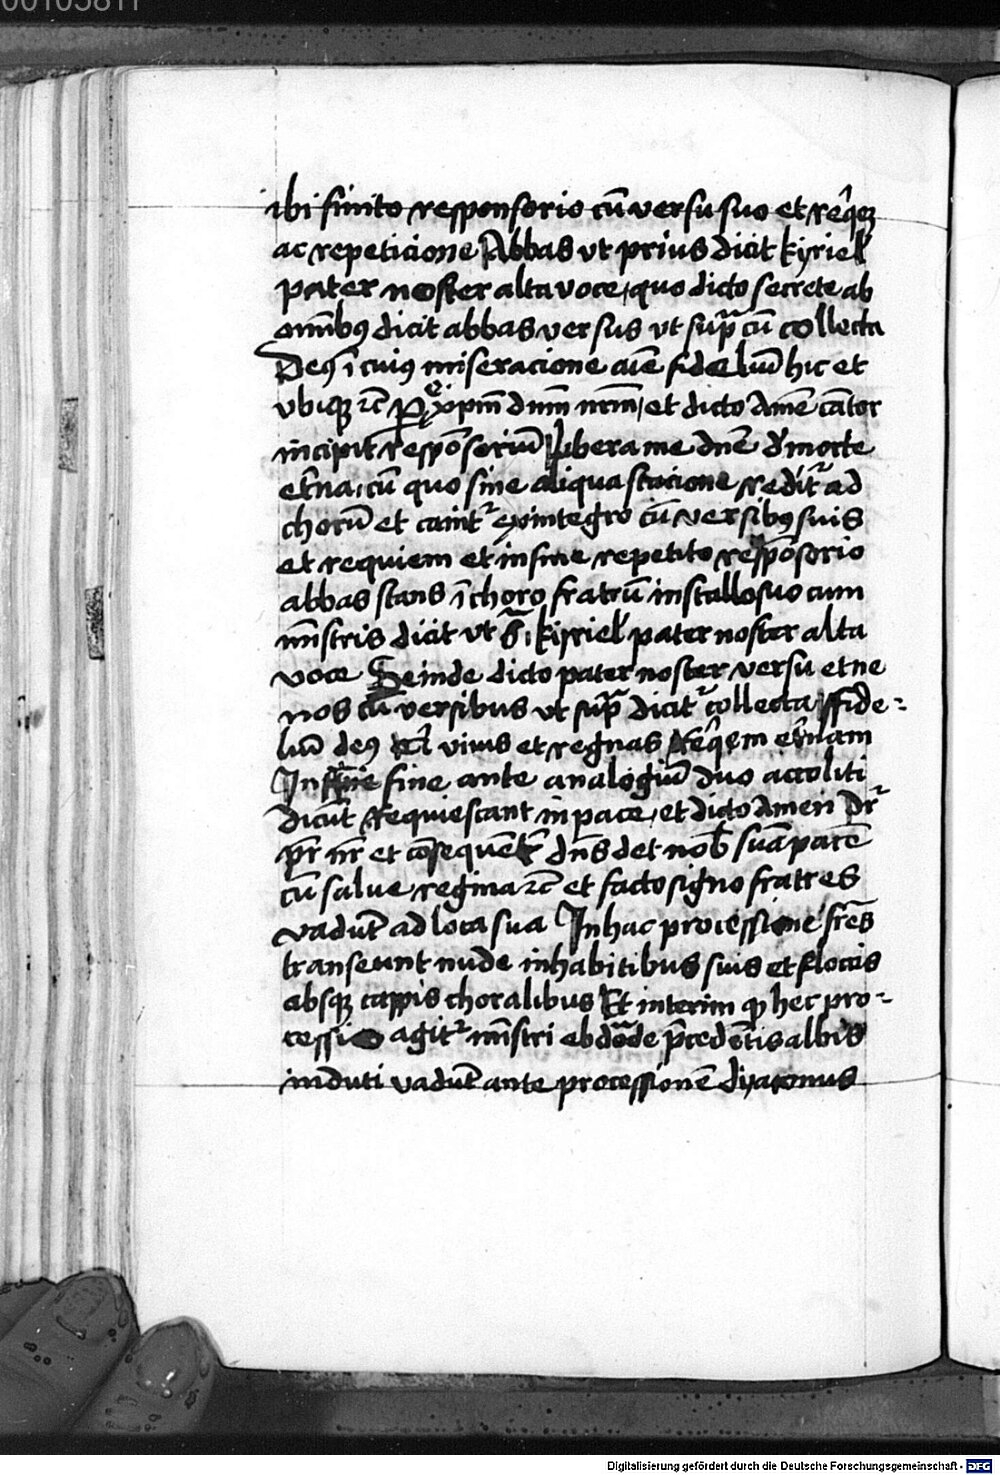 00105811
ibi finito responsorio cū versu suo et req̄ꝫ
ac repeticione Abbas vt prius dicit kyriel'
pater noster alta voce, quo dicto secrete ab
omībꝰ dicit abbas versus vt sup̄ cū collecta
Deꝰ ī cuiꝰ miseracione aīe fideliū hic et
vbiqꝫ ⁊c̄ P eū xp̄m dnm̄ nrm̄, et dicto Amē cātor
incipit respōsoriū Libera me dn̄e d' morte
et̄na, cū quo sine aliqua stacione reditʳ ad
chorū et cantʳ ex integro cū versibꝰ suis
et requiem et in fine repetito respōsorio
abbas stans ī choro fratrū in stallo suo cum
mīstris dicit vt sᵃ, kyriel' pater noster alta
voce Deinde dicto pater noster versu et ne
nos cū versibus vt sup̄ dicitʳ collecta ffide-
liū deꝰ viuis et regnas Req̄em et̄nam
In fine ante analogiū duo accoliti
dicūt Requiescant in pace, et dicto Amen Drʳ
pr̄ nr̄ et cōsequent̄ dn̄s det nob̄ suā pacē
cū salue regina ⁊c̄ et facto signo fratres
vadūt ad loca sua In hac processione fr̄es
transeunt nude in habitibus suis et floccis
absqꝫ cappis choralibus Et interim qꝫ hec pro-
cessio agitʳ mīstri ebdōde p̄cedētis albis
induti vadūt ante processionē dyaconus
Digitalisierung gefördert durch die Deutsche Forschungsgemeinschaft - DFG